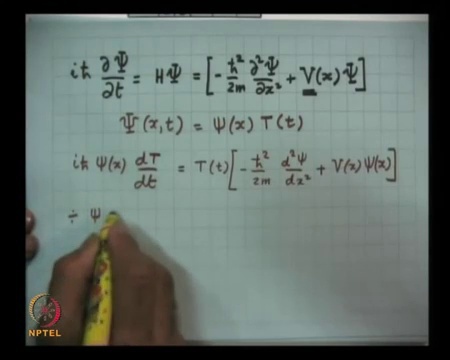 iħ ∂Ψ/∂t = HΨ = [-ħ²/2m ∂²Ψ/∂x² + V(x)Ψ]
Ψ(x,t) = ψ(x) T(t)
iħ ψ(x) dT/dt = T(t)[-ħ²/2m d²ψ/dx² + V(x)ψ(x)]
÷ ψ
NPTEL